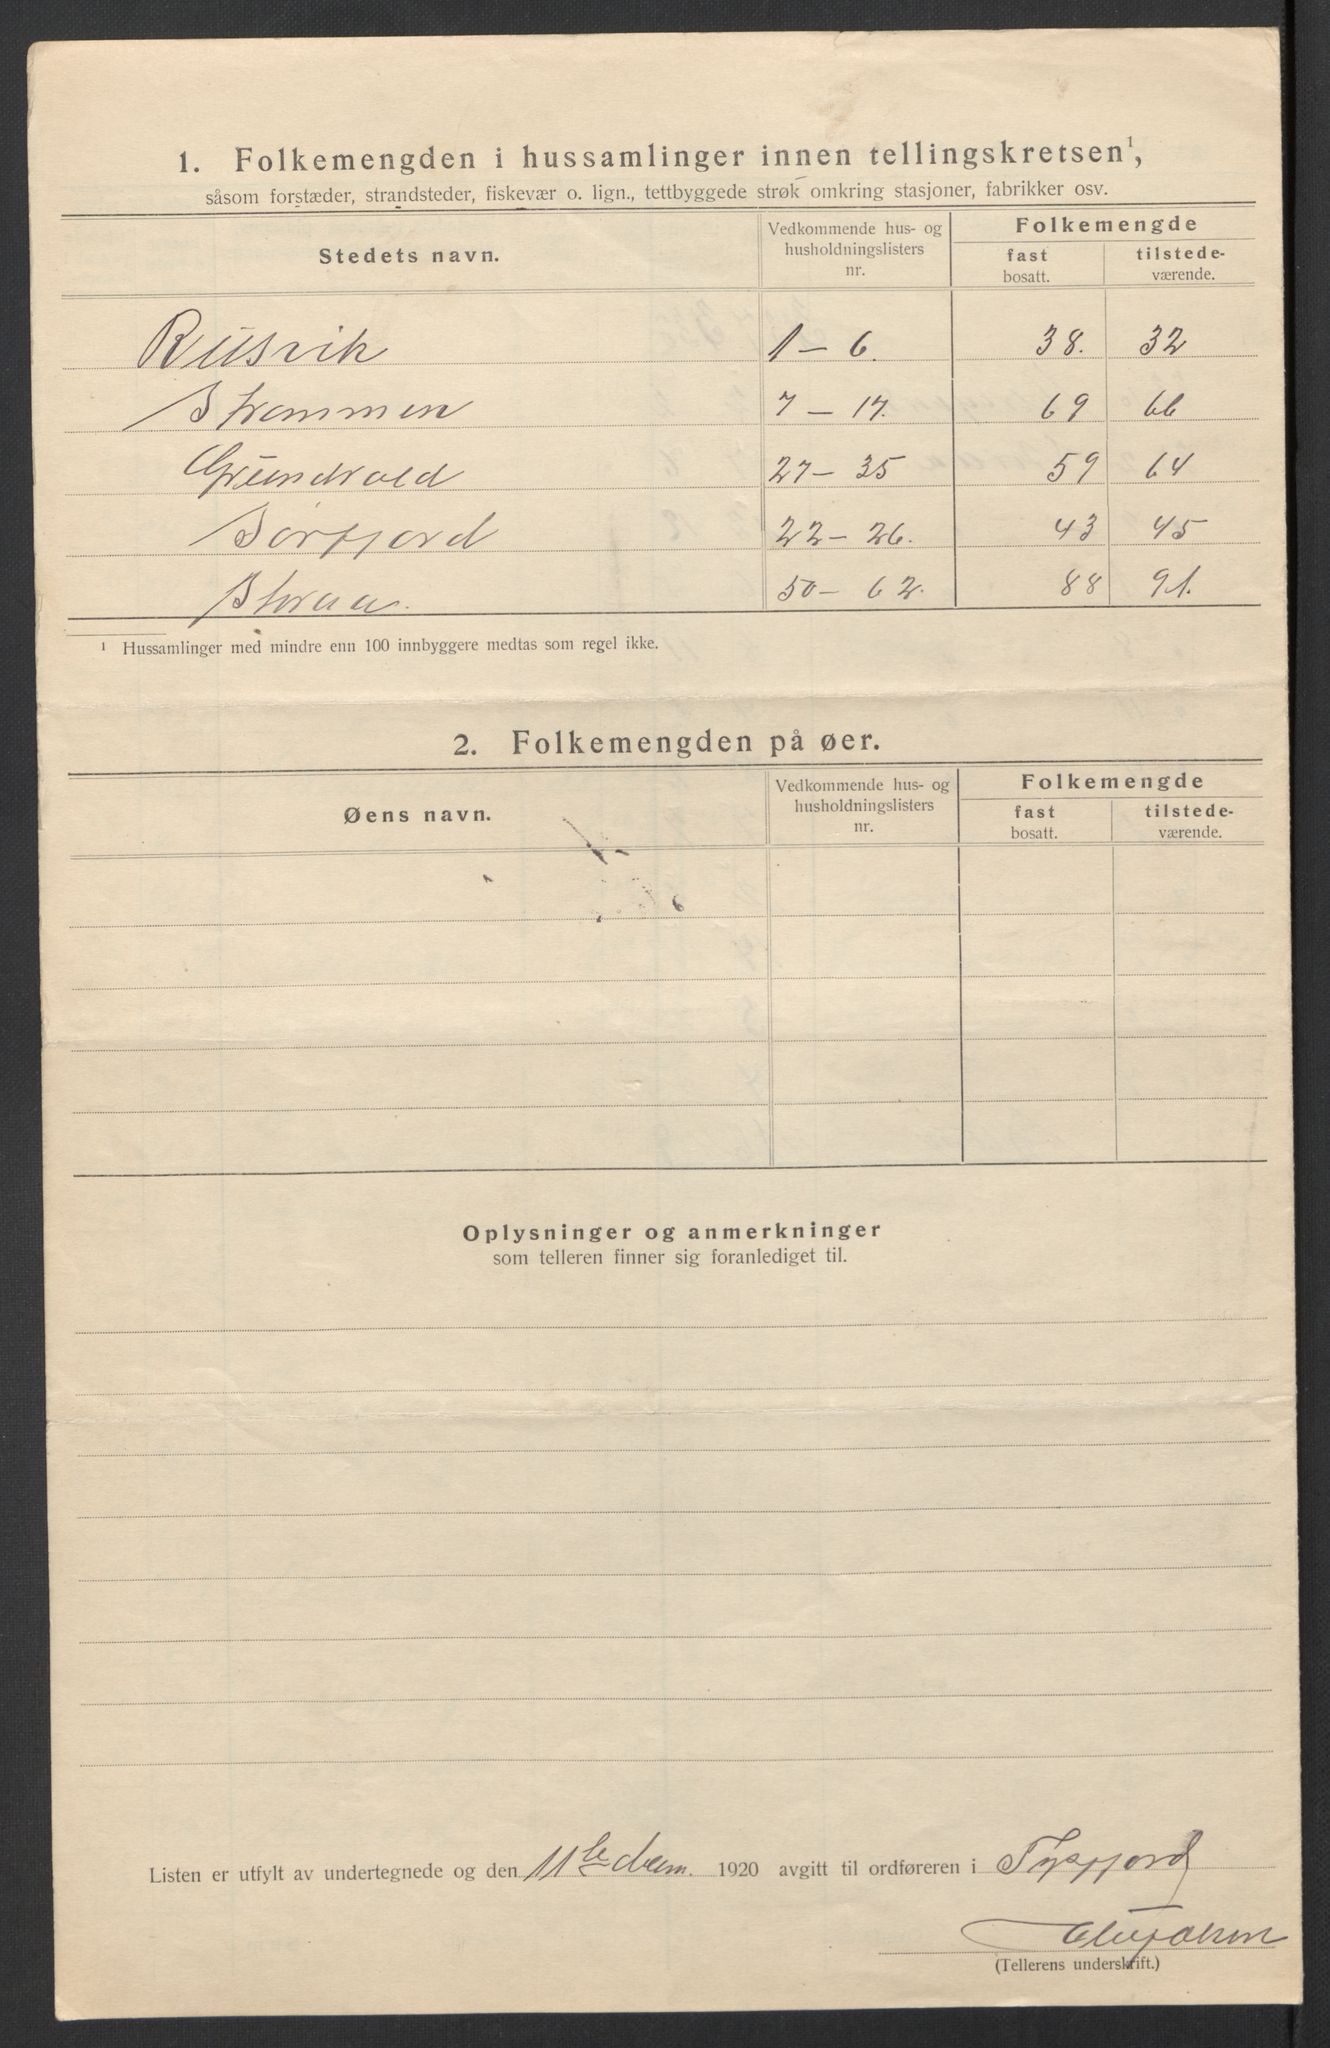 1. Folkemengden i hussamlinger innen tellingskretsen¹,
såsom forstæder, strandsteder, fiskevær o. lign., tettbyggede strøk omkring stasjoner, fabrikker osv.
Stedets navn. Vedkommende hus- og husholdningslisters nr. Folkemengde
fast bosatt. tilstede-værende.
Rusvik 1 – 6. 38. 32
Strømmen 7 – 17. 69 66
Grundvold 27 – 35 59 64
Sörfjord 22 – 26. 43 45
Storaa. 50 – 62. 88 91.
¹ Hussamlinger med mindre enn 100 innbyggere medtas som regel ikke.
2. Folkemengden på øer.
Øens navn. Vedkommende hus- og husholdningslisters nr. Folkemengde
fast bosatt. tilstede-værende.
Oplysninger og anmerkninger
som telleren finner sig foranlediget til.
Listen er utfylt av undertegnede og den 11te decem. 1920 avgitt til ordføreren i Tysfjord
(Tellerens underskrift.)